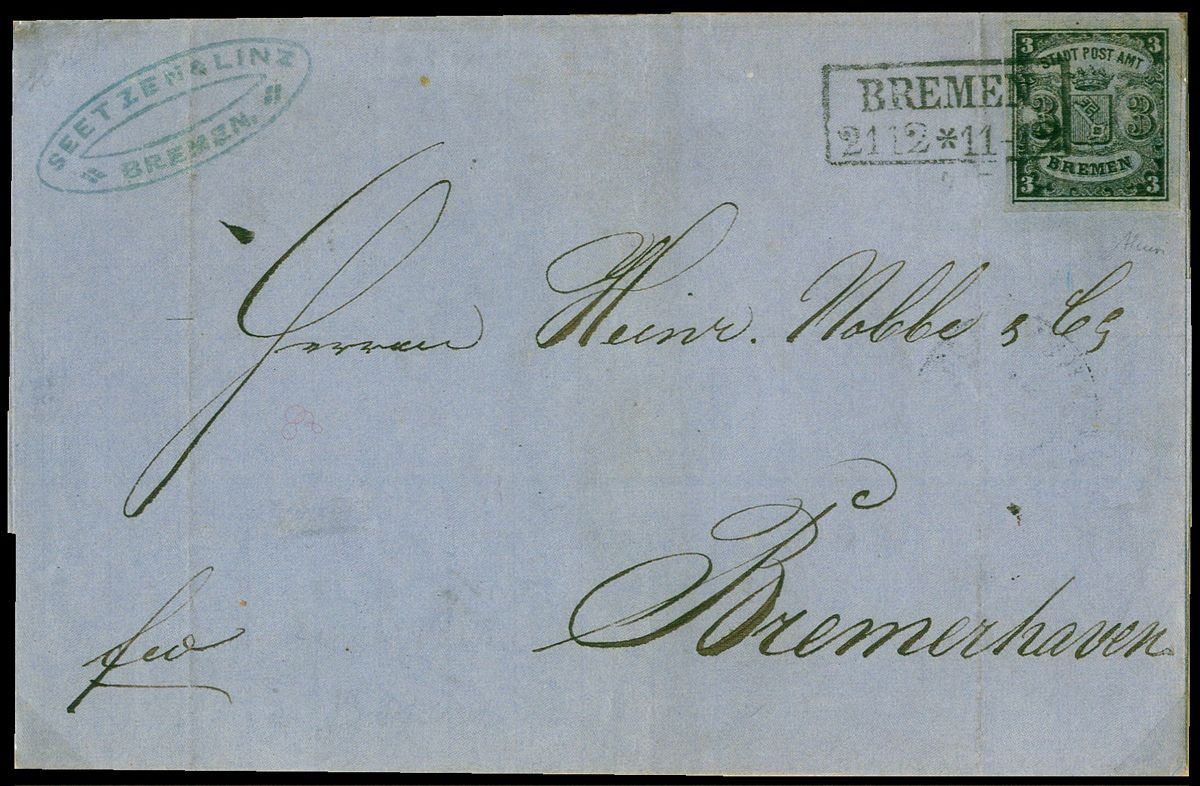 SEETZEN & LINZ
BREMEN.
BREMEN
21 12 * 11-12
3 3
STADT POST AMT
3 3
BREMEN
3 3
Herren Heinr. Nobbe & Co
Bremerhaven
fco